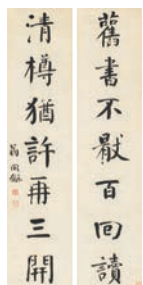 舊書不厭百回讀
清樽猶許再三開
翁同龢